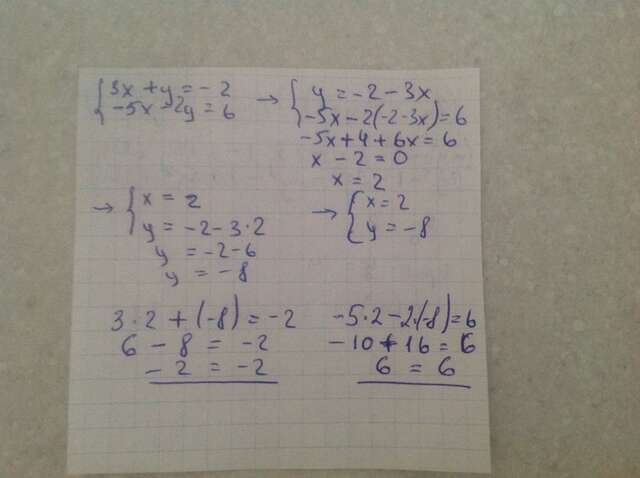 { 3x + y = -2
-5x - 2y = 6
→ { y = -2 - 3x
-5x - 2(-2-3x) = 6
-5x + 4 + 6x = 6
x - 2 = 0
x = 2
→ { x = 2
y = -2 - 3·2
y = -2 - 6
y = -8
→ { x = 2
y = -8
3·2 + (-8) = -2
6 - 8 = -2
-2 = -2
-5·2 - 2·(-8) = 6
-10 + 16 = 6
6 = 6